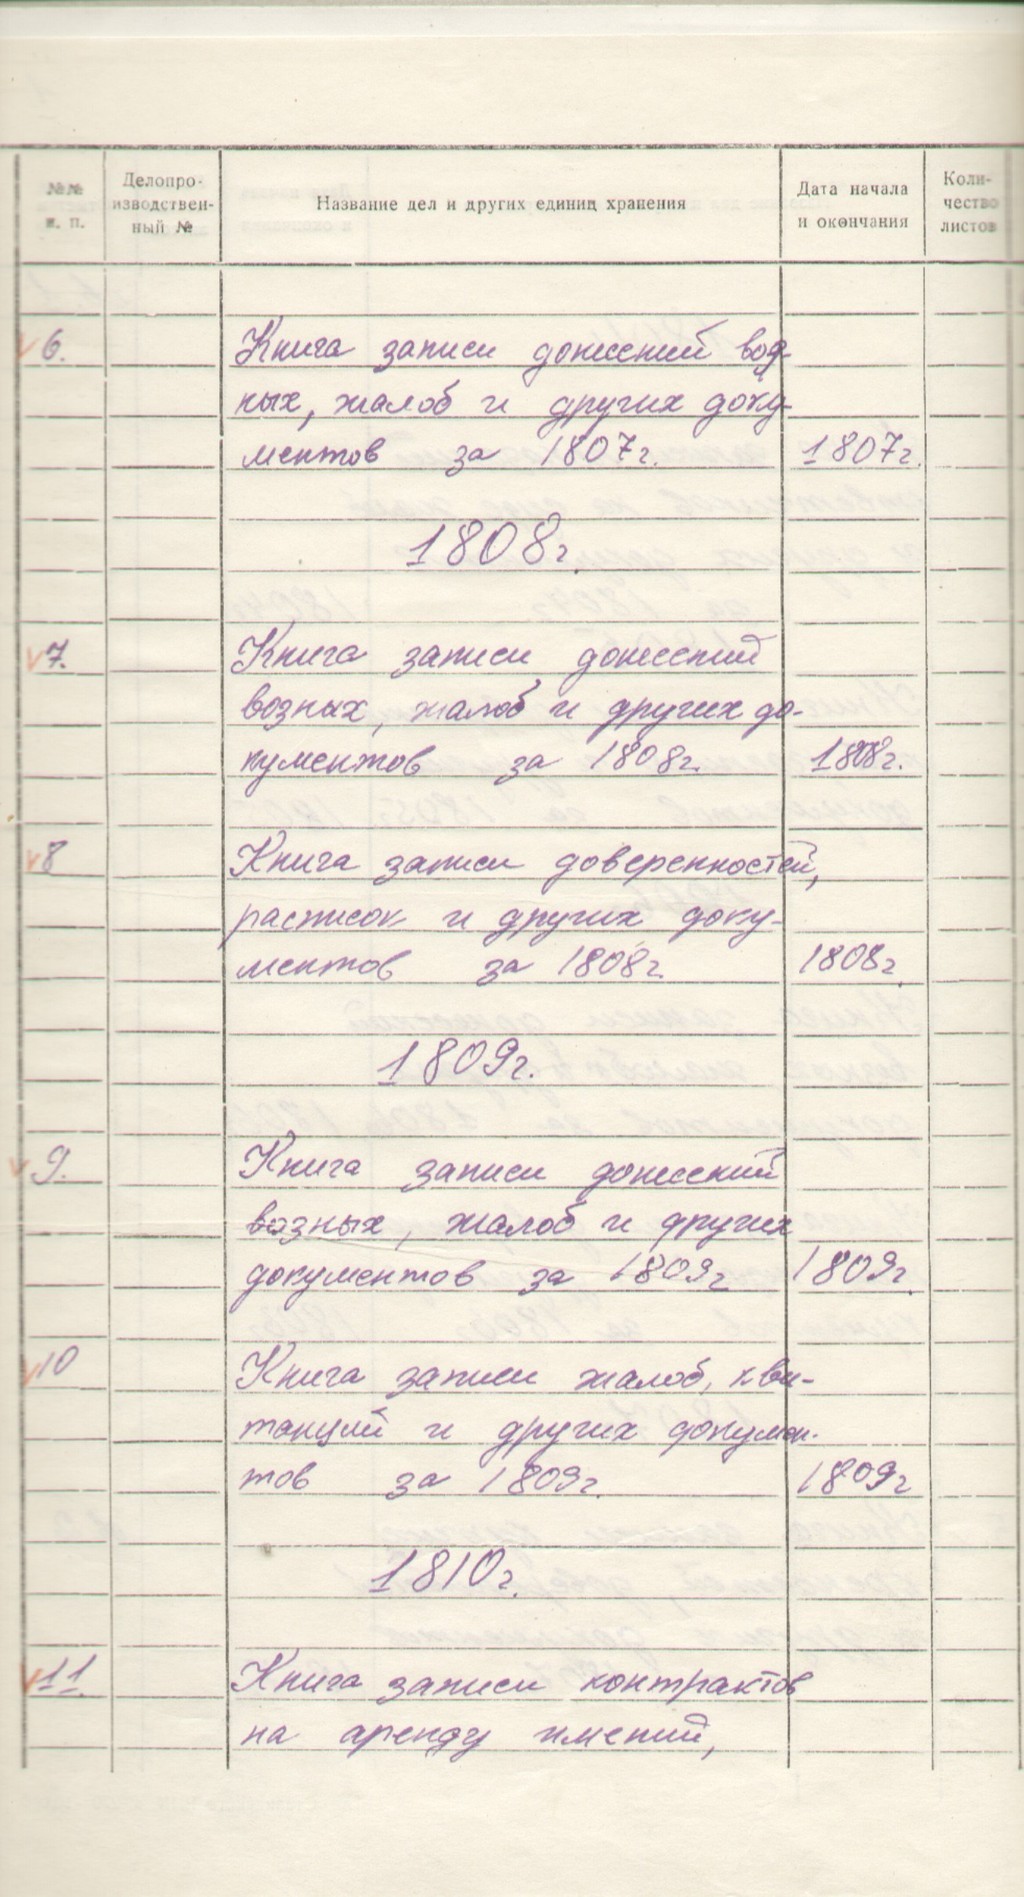 №№ п. п.
Делопро-
изводствен-
ный №
Название дел и других единиц хранения
Дата начала
и окончания
Коли-
чество
листов
6. Книга записи донесений воз-
ных, жалоб и других доку-
ментов за 1807г. 1807г.
1808г.
7. Книга записи донесений
возных, жалоб и других до-
кументов за 1808г. 1808г.
8 Книга записи доверенностей,
расписок и других доку-
ментов за 1808г. 1808г.
1809г.
9. Книга записи донесений
возных, жалоб и других
документов за 1809г 1809г.
10 Книга записи жалоб, кви-
танций и других докумен-
тов за 1809г. 1809г
1810г.
11. Книга записи контрактов
на аренду имений,